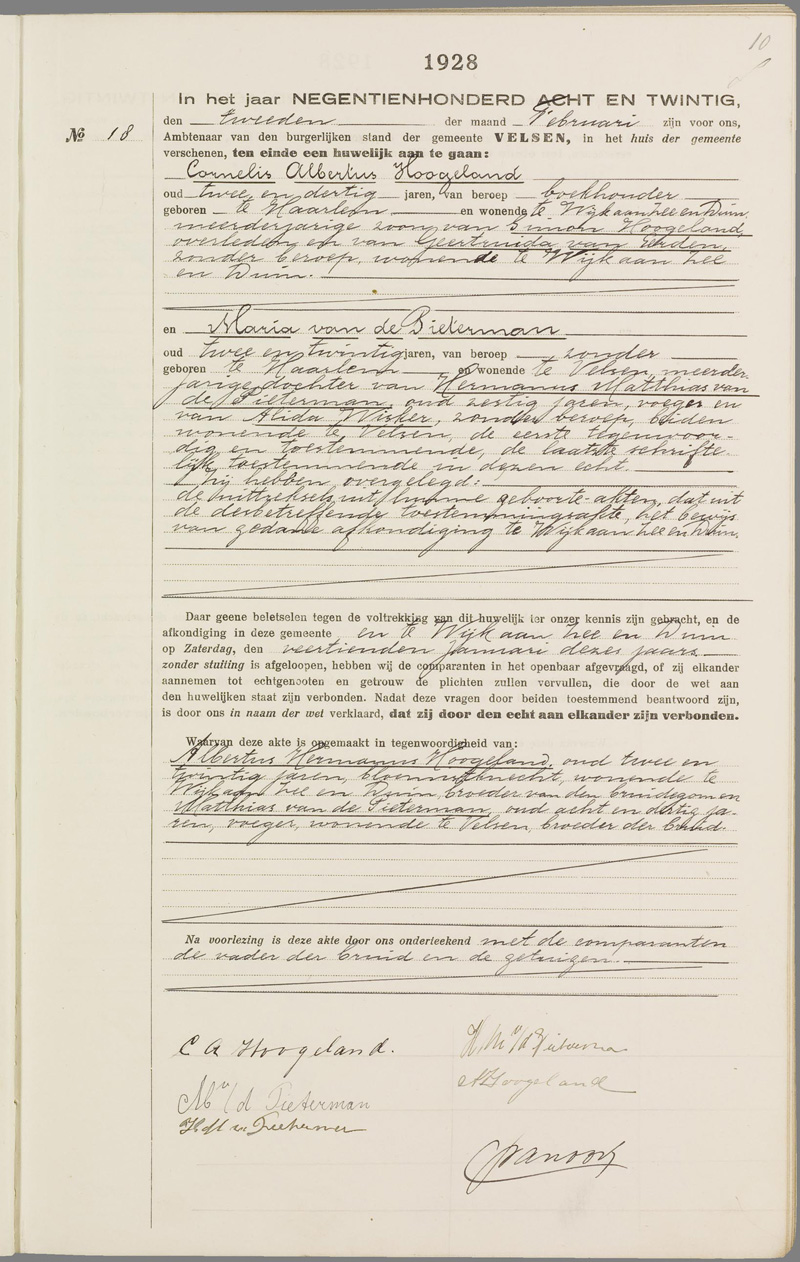 10
1928
In het jaar NEGENTIENHONDERD ACHT EN TWINTIG,
den tweeden der maand Februari zijn voor ons,
No 18
Ambtenaar van den burgerlijken stand der gemeente VELSEN, in het huis der gemeente
verschenen, ten einde een huwelijk aan te gaan:
Cornelis Albertus Hoogeland
oud twee en dertig jaren, van beroep boekhouder
geboren te Haarlem en wonende te Wijk aan Zee en Duin,
meerderjarige zoon van Simon Hoogeland,
overleden en van Geertruida van Eerden,
zonder beroep, wonende te Wijk aan Zee
en Duin.
en Maria van de Pieterman
oud twee en twintig jaren, van beroep zonder
geboren te Haarlem en wonende te Velsen, meerder-
jarige dochter van Hermanus Matthias van
de Pieterman, oud zestig jaren, voeger en
van Alida Wisker, zonder beroep, beiden
wonende te Velsen, de eerste tegenwoor-
dig en toestemmende, de laatste schrifte-
lijk toestemmende in dezen echt.
Zij hebben overgelegd:
de uittreksels uit hunne geboorte-akten, dat uit
de desbetreffende toestemmingsakte, het bewijs
van gedane afkondiging te Wijk aan Zee en Duin.
Daar geene beletselen tegen de voltrekking van dit huwelijk ter onzer kennis zijn gebracht, en de
afkondiging in deze gemeente en te Wijk aan Zee en Duin
op Zaterdag, den veertienden Januari dezes jaars
zonder stuiting is afgeloopen, hebben wij de comparanten in het openbaar afgevraagd, of zij elkander
aannemen tot echtgenooten en getrouw de plichten zullen vervullen, die door de wet aan
den huwelijken staat zijn verbonden. Nadat deze vragen door beiden toestemmend beantwoord zijn,
is door ons in naam der wet verklaard, dat zij door den echt aan elkander zijn verbonden.
Waarvan deze akte is opgemaakt in tegenwoordigheid van:
Albertus Hermanus Hoogeland, oud twee en
twintig jaren, bloemistknecht, wonende te
Wijk aan Zee en Duin, broeder van den bruidegom en
Matthias van de Pieterman, oud acht en dertig ja-
ren, voeger, wonende te Velsen, broeder der bruid.
Na voorlezing is deze akte door ons onderteekend met de comparanten
de vader der bruid en de getuigen.
C A Hoogeland.
H. M v/d Pieterman
M v/d Pieterman
A H Hoogeland